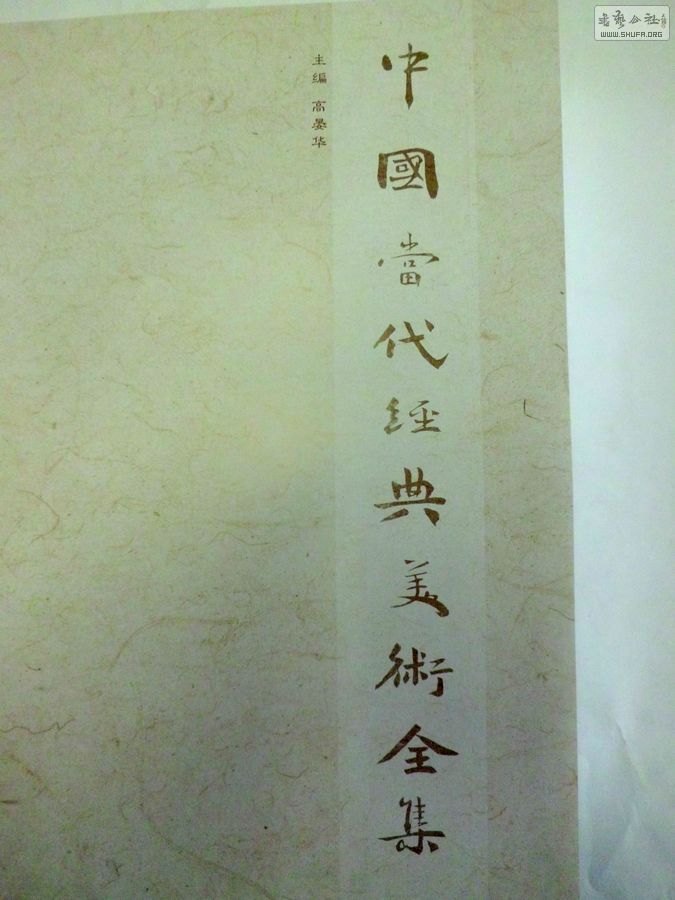 中國當代經典美術全集
主编 高晏华
書藝公社
WWW.SHUFA.ORG